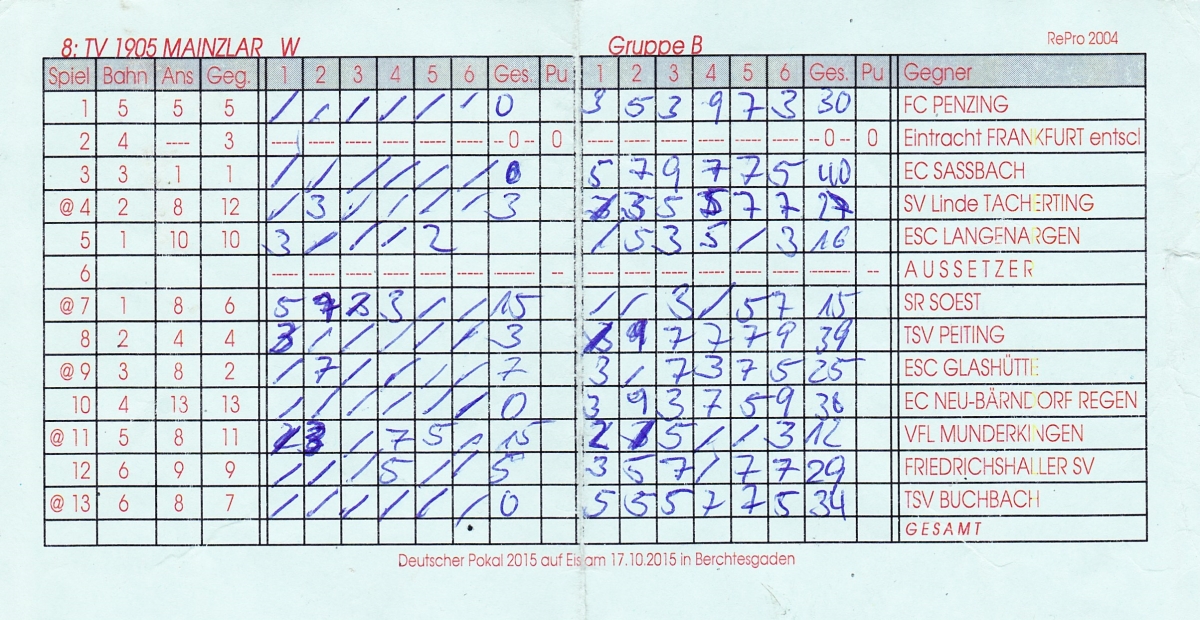 8: TV 1905 MAINZLAR W Gruppe B RePro 2004
Spiel Bahn Ans Geg. 1 2 3 4 5 6 Ges. Pu 1 2 3 4 5 6 Ges. Pu Gegner
1 5 5 5 / / / / / / 0 3 5 3 9 7 3 30 FC PENZING
2 4 ---- 3 ----- ----- ----- ----- ----- ----- -- 0 -- 0 ----- ----- ----- ----- ----- ----- -- 0 -- 0 Eintracht FRANKFURT entscl
3 3 1 1 / / / / / / 0 5 7 9 7 7 5 40 EC SASSBACH
@ 4 2 8 12 / 3 / / / / 3 3 5 5 7 7 27 SV Linde TACHERTING
5 1 10 10 3 / / / 2 / 5 3 5 / 3 16 ESC LANGENARGEN
6 ----- ----- ----- ----- ----- ----- ------- -- ----- ----- ----- ----- ----- ----- ------- -- AUSSETZER
@ 7 1 8 6 5 7 3 3 / / 15 / / 3 / 5 7 15 SR SOEST
8 2 4 4 3 / / / / / 3 9 7 7 7 9 39 TSV PEITING
@ 9 3 8 2 / 7 / / / / 7 3 / 7 3 7 5 25 ESC GLASHÜTTE
10 4 13 13 / / / / / / 0 3 9 3 7 5 9 36 EC NEU-BÄRNDORF REGEN
@ 11 5 8 11 3 / 7 5 / 15 5 / / 3 12 VFL MUNDERKINGEN
12 6 9 9 / / / 5 / / 5 3 5 7 / 7 7 29 FRIEDRICHSHALLER SV
@ 13 6 8 7 / / / / / / 0 5 5 5 7 7 5 34 TSV BUCHBACH
GESAMT
Deutscher Pokal 2015 auf Eis am 17.10.2015 in Berchtesgaden